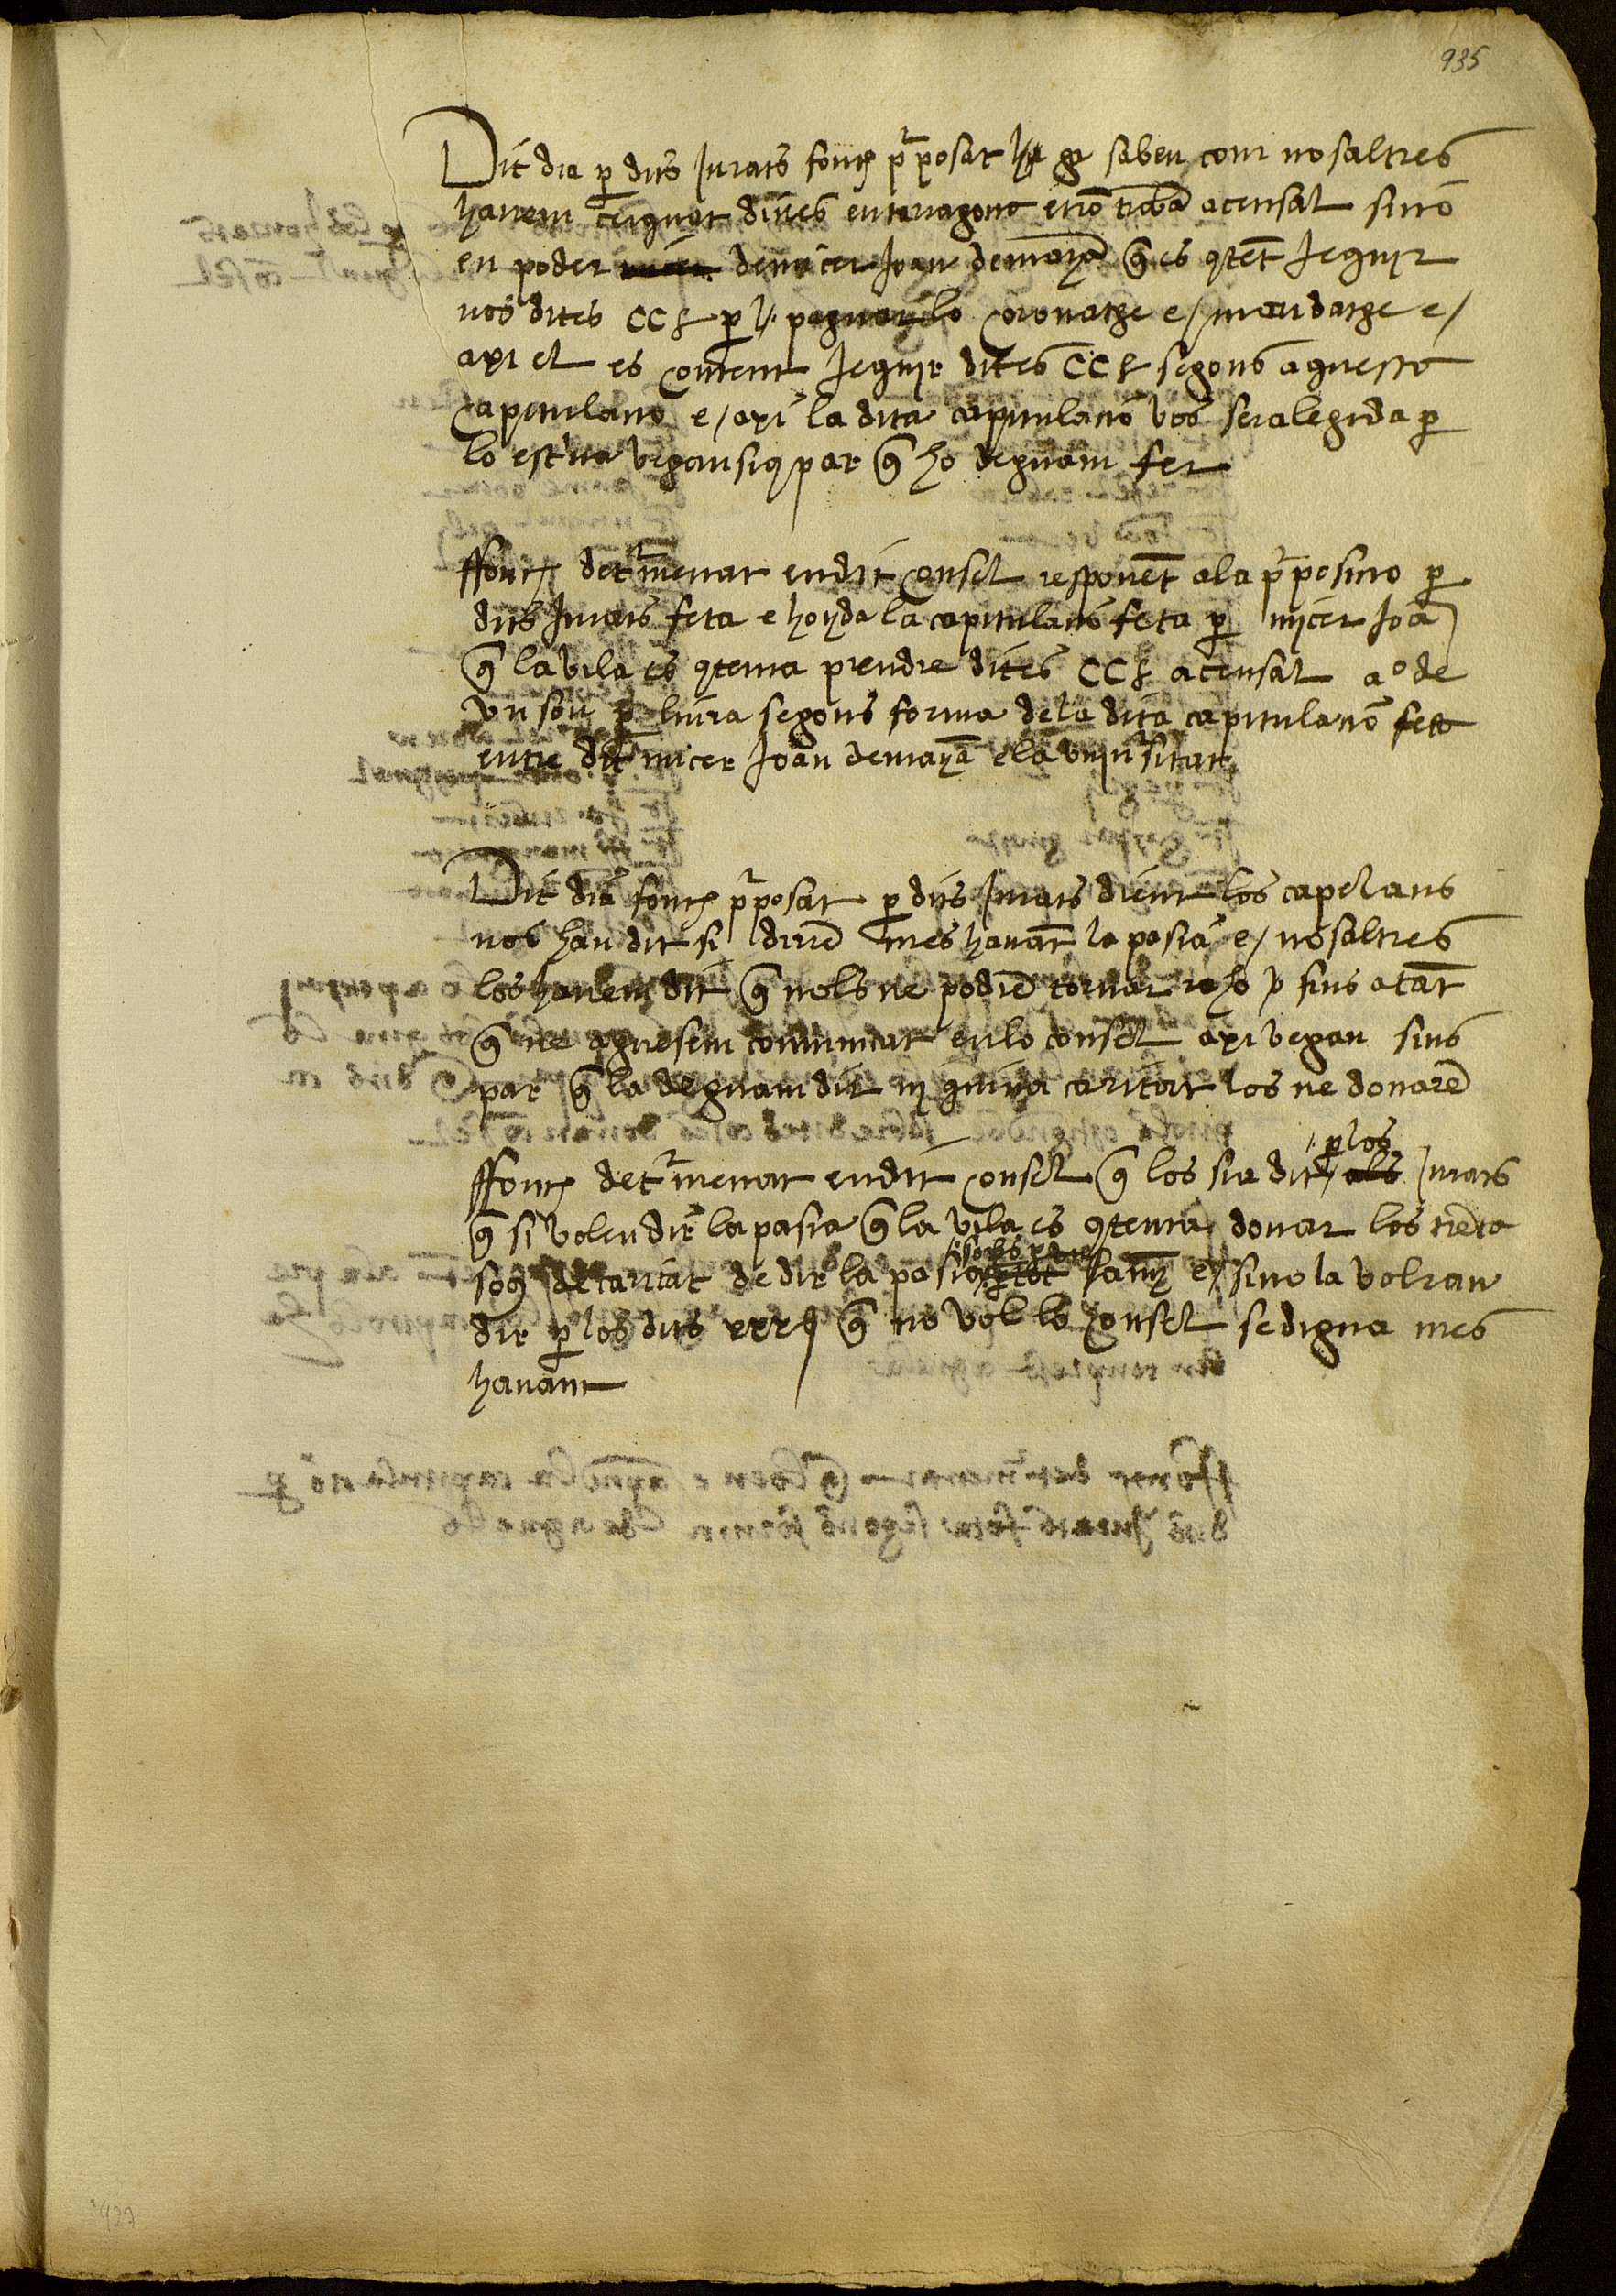 935
Dit dia per dits Jurats fonch pposat ja saben com nosaltres
havem cerquat dines en tarragona e no trobã a censal sino
en poder de micer Joan de mayã q̃ es qtẽt seguir
nos dites CC ll per paguar lo coronatge e/ mandatge e/
axi el es content seguir dites CC ll segons aquesta
capitulatio e/ axi la dita capitulatio vos sera legida per
lo escriva vegau sius par q̃ ho deguam fer
ffonch detmenat en dit consel responẽt a la pposicio per
dits Jurats feta e hoyda la capitulatio feta per micer Joã
q̃ la vila es qtenta prendre dites CC ll a censal a ò de
un sou per liura segons forma de la dita capitulatio feta
entre dit micer Joan de mayã e la universitat
Dit dia fonch pposat per dits Jurats dient los capelans
nos han dit si dirẽ mes havant la pasia e/ nosaltres
los havem dit q̃ nols ne podiẽ tornar raho fins a tãt
q̃ ne aguesem comunicat en lo consel axi vegau sius
par q̃ la deguam dir ni quina caritat los ne donarẽ
ffonch detmenat en dit consel q̃ los sia dit per los Jurats
q̃ si volen dir la pasia q̃ la vila es qtenta donar los trẽta
sous de caritat de dir la pasia lany e/ si no la volran
dir per los dits xxx ss q̃ no vol lo consel se digua mes
havant
427